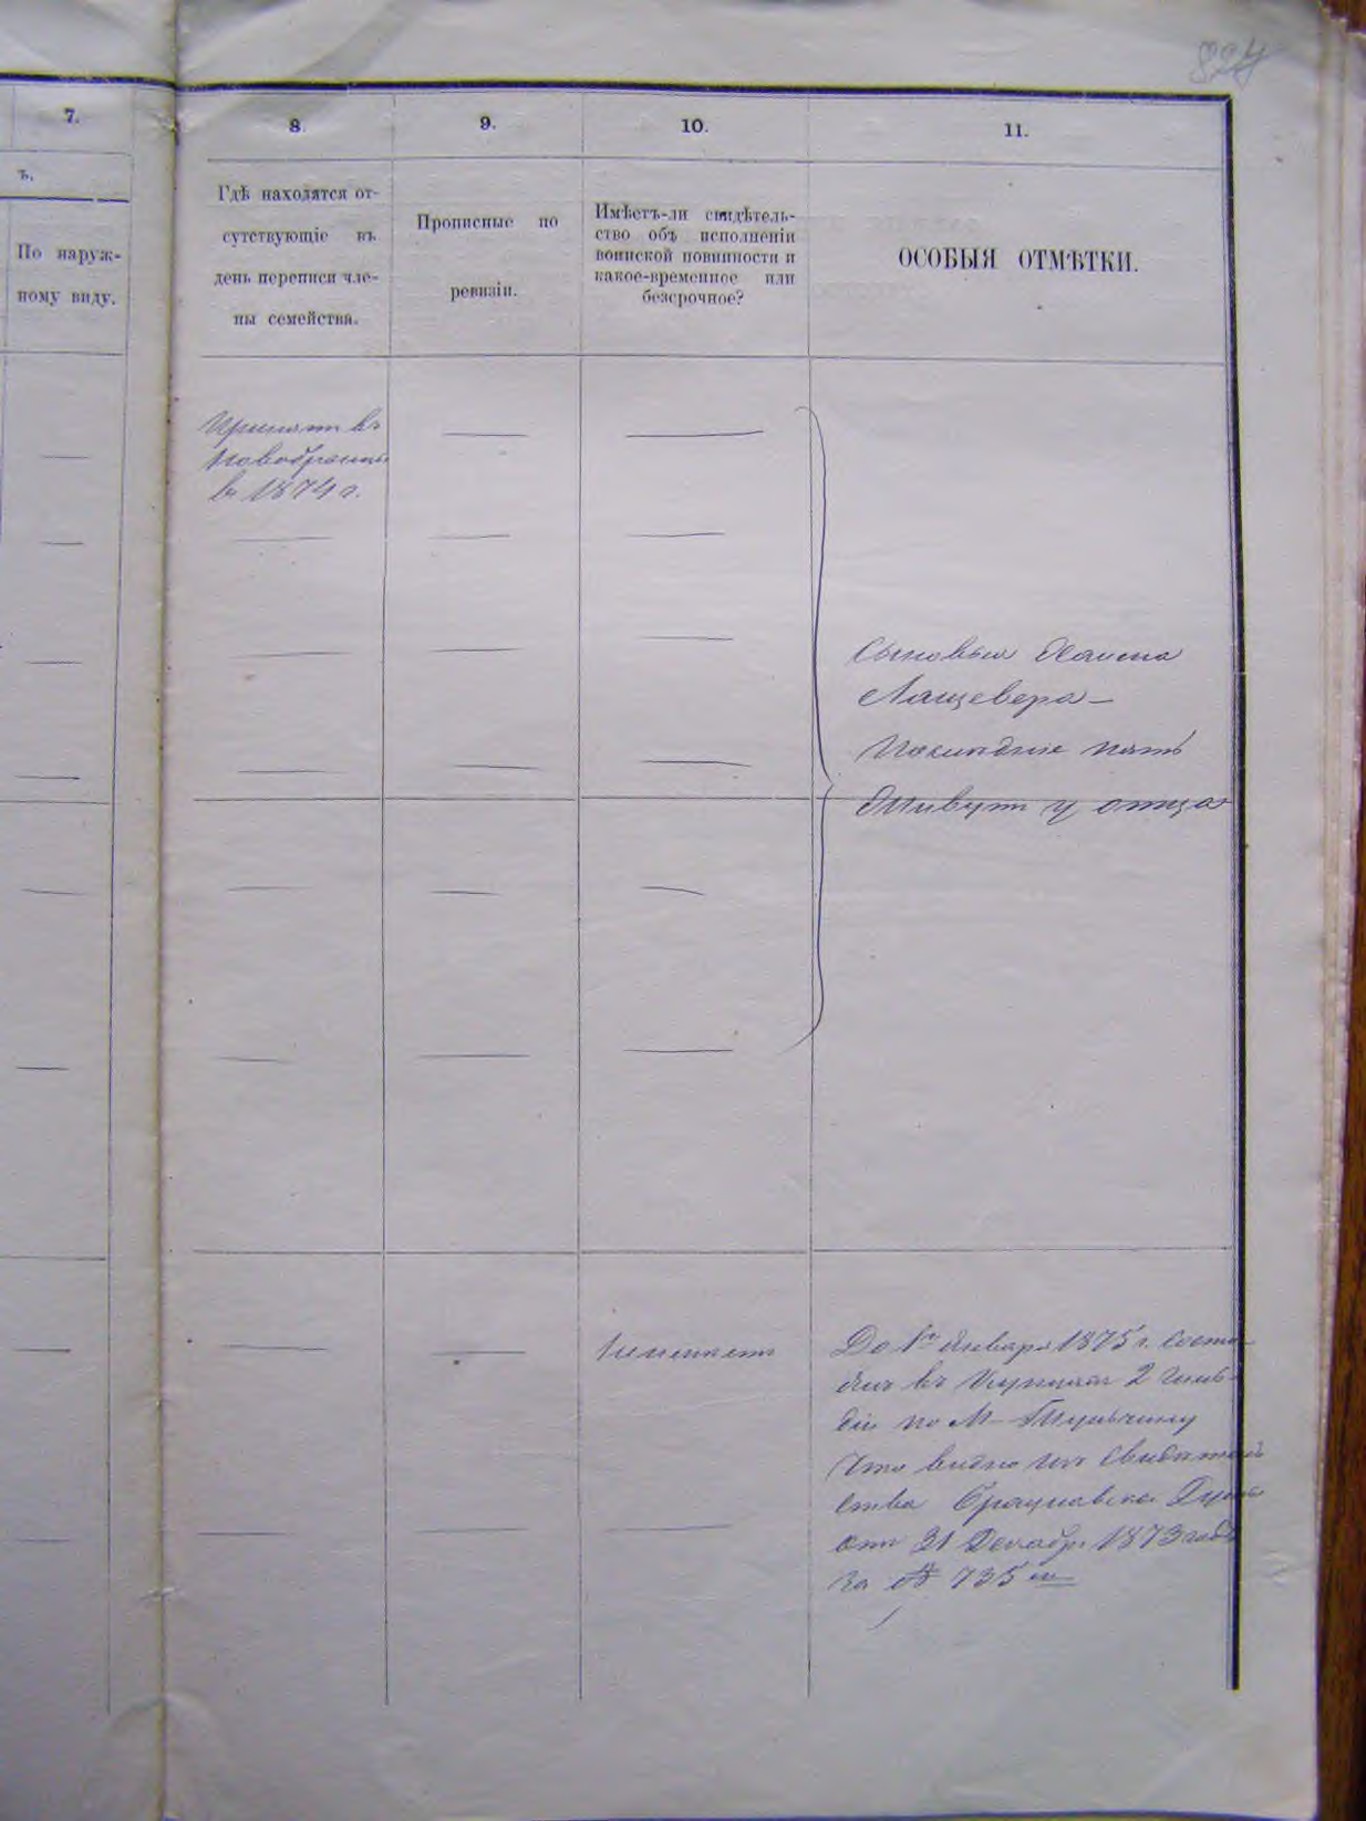 824
7.
8.
9.
10.
11.
ъ.
По наруж-
ному виду.
Гдѣ находятся от-
сутствующіе въ
день переписи чле-
ны семейства.
Прописные по
ревизіи.
Имѣетъ-ли свидѣтель-
ство объ исполненіи
воинской повинности и
какое-временное или
безсрочное?
ОСОБЫЯ ОТМѢТКИ.
Принятъ въ
новобранцы
въ 1874 г.
Сыновья Хаима
Лащевера-
Послѣдніе пять
живутъ у отца
Неимѣетъ
До 1го Января 1875 г. состо
ялъ въ купцахъ 2 гиль-
діи по М. Тульчину
что видно изъ свидѣтель
ства Брацлавско Думы
отъ 31 Декабр. 1873 года
за № 735 мъ